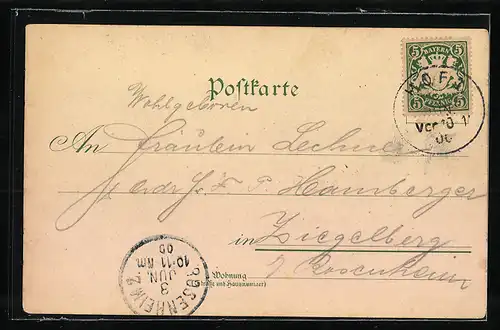 Postkarte
5 BAYERN 5
5 PFENNIG 5
HOF
Vor 10-1
00
Wohlgeboren
An Fräulein Lechner
Adr J. P. Hamberger
in Ziegelberg
Rosenheim
Wohnung
(Straße und Hausnummer)
ROSENHEIM 2
3
JUN.
10-11 Nm
00